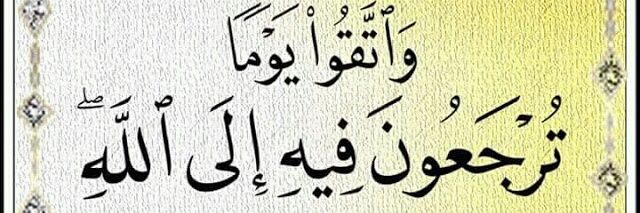 وَٱتَّقُوا۟ يَوْمًا
تُرْجَعُونَ فِيهِ إِلَى ٱللَّهِ ۖ